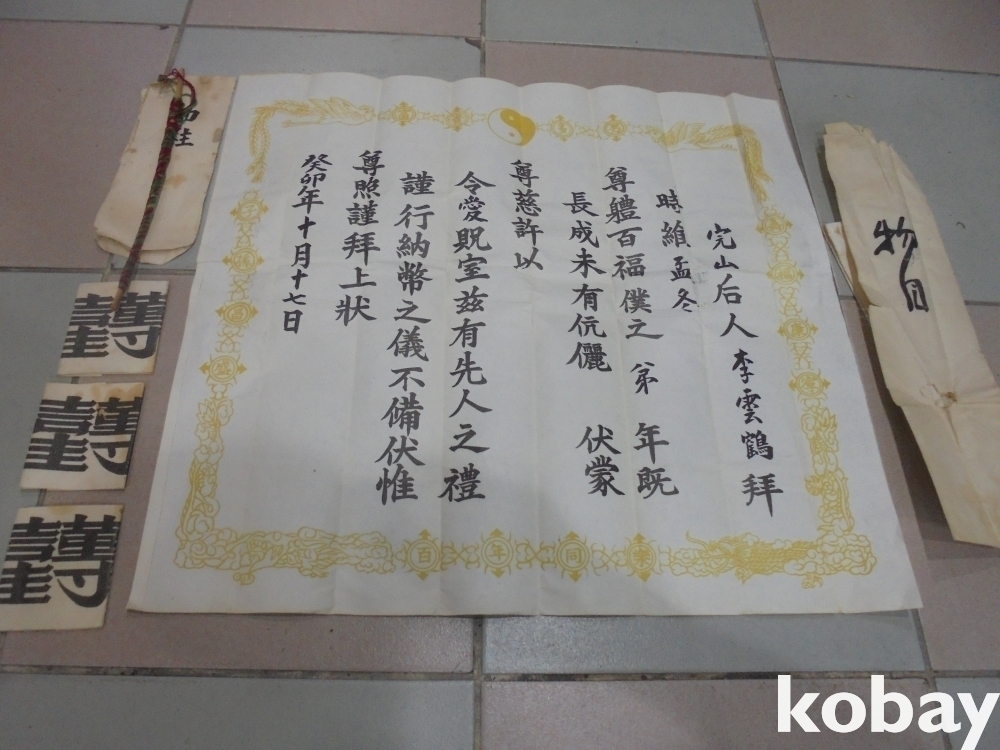 物目
完山后人李雲鶴 拜
時維孟冬
尊體百福僕之 弟 年既
長成未有伉儷 伏蒙
尊慈許以
令愛貺室玆有先人之禮
謹行納幣之儀不備伏惟
尊照謹拜上狀
癸卯年十月十七日
百年同
四柱
謹封
謹封
謹封
kobay